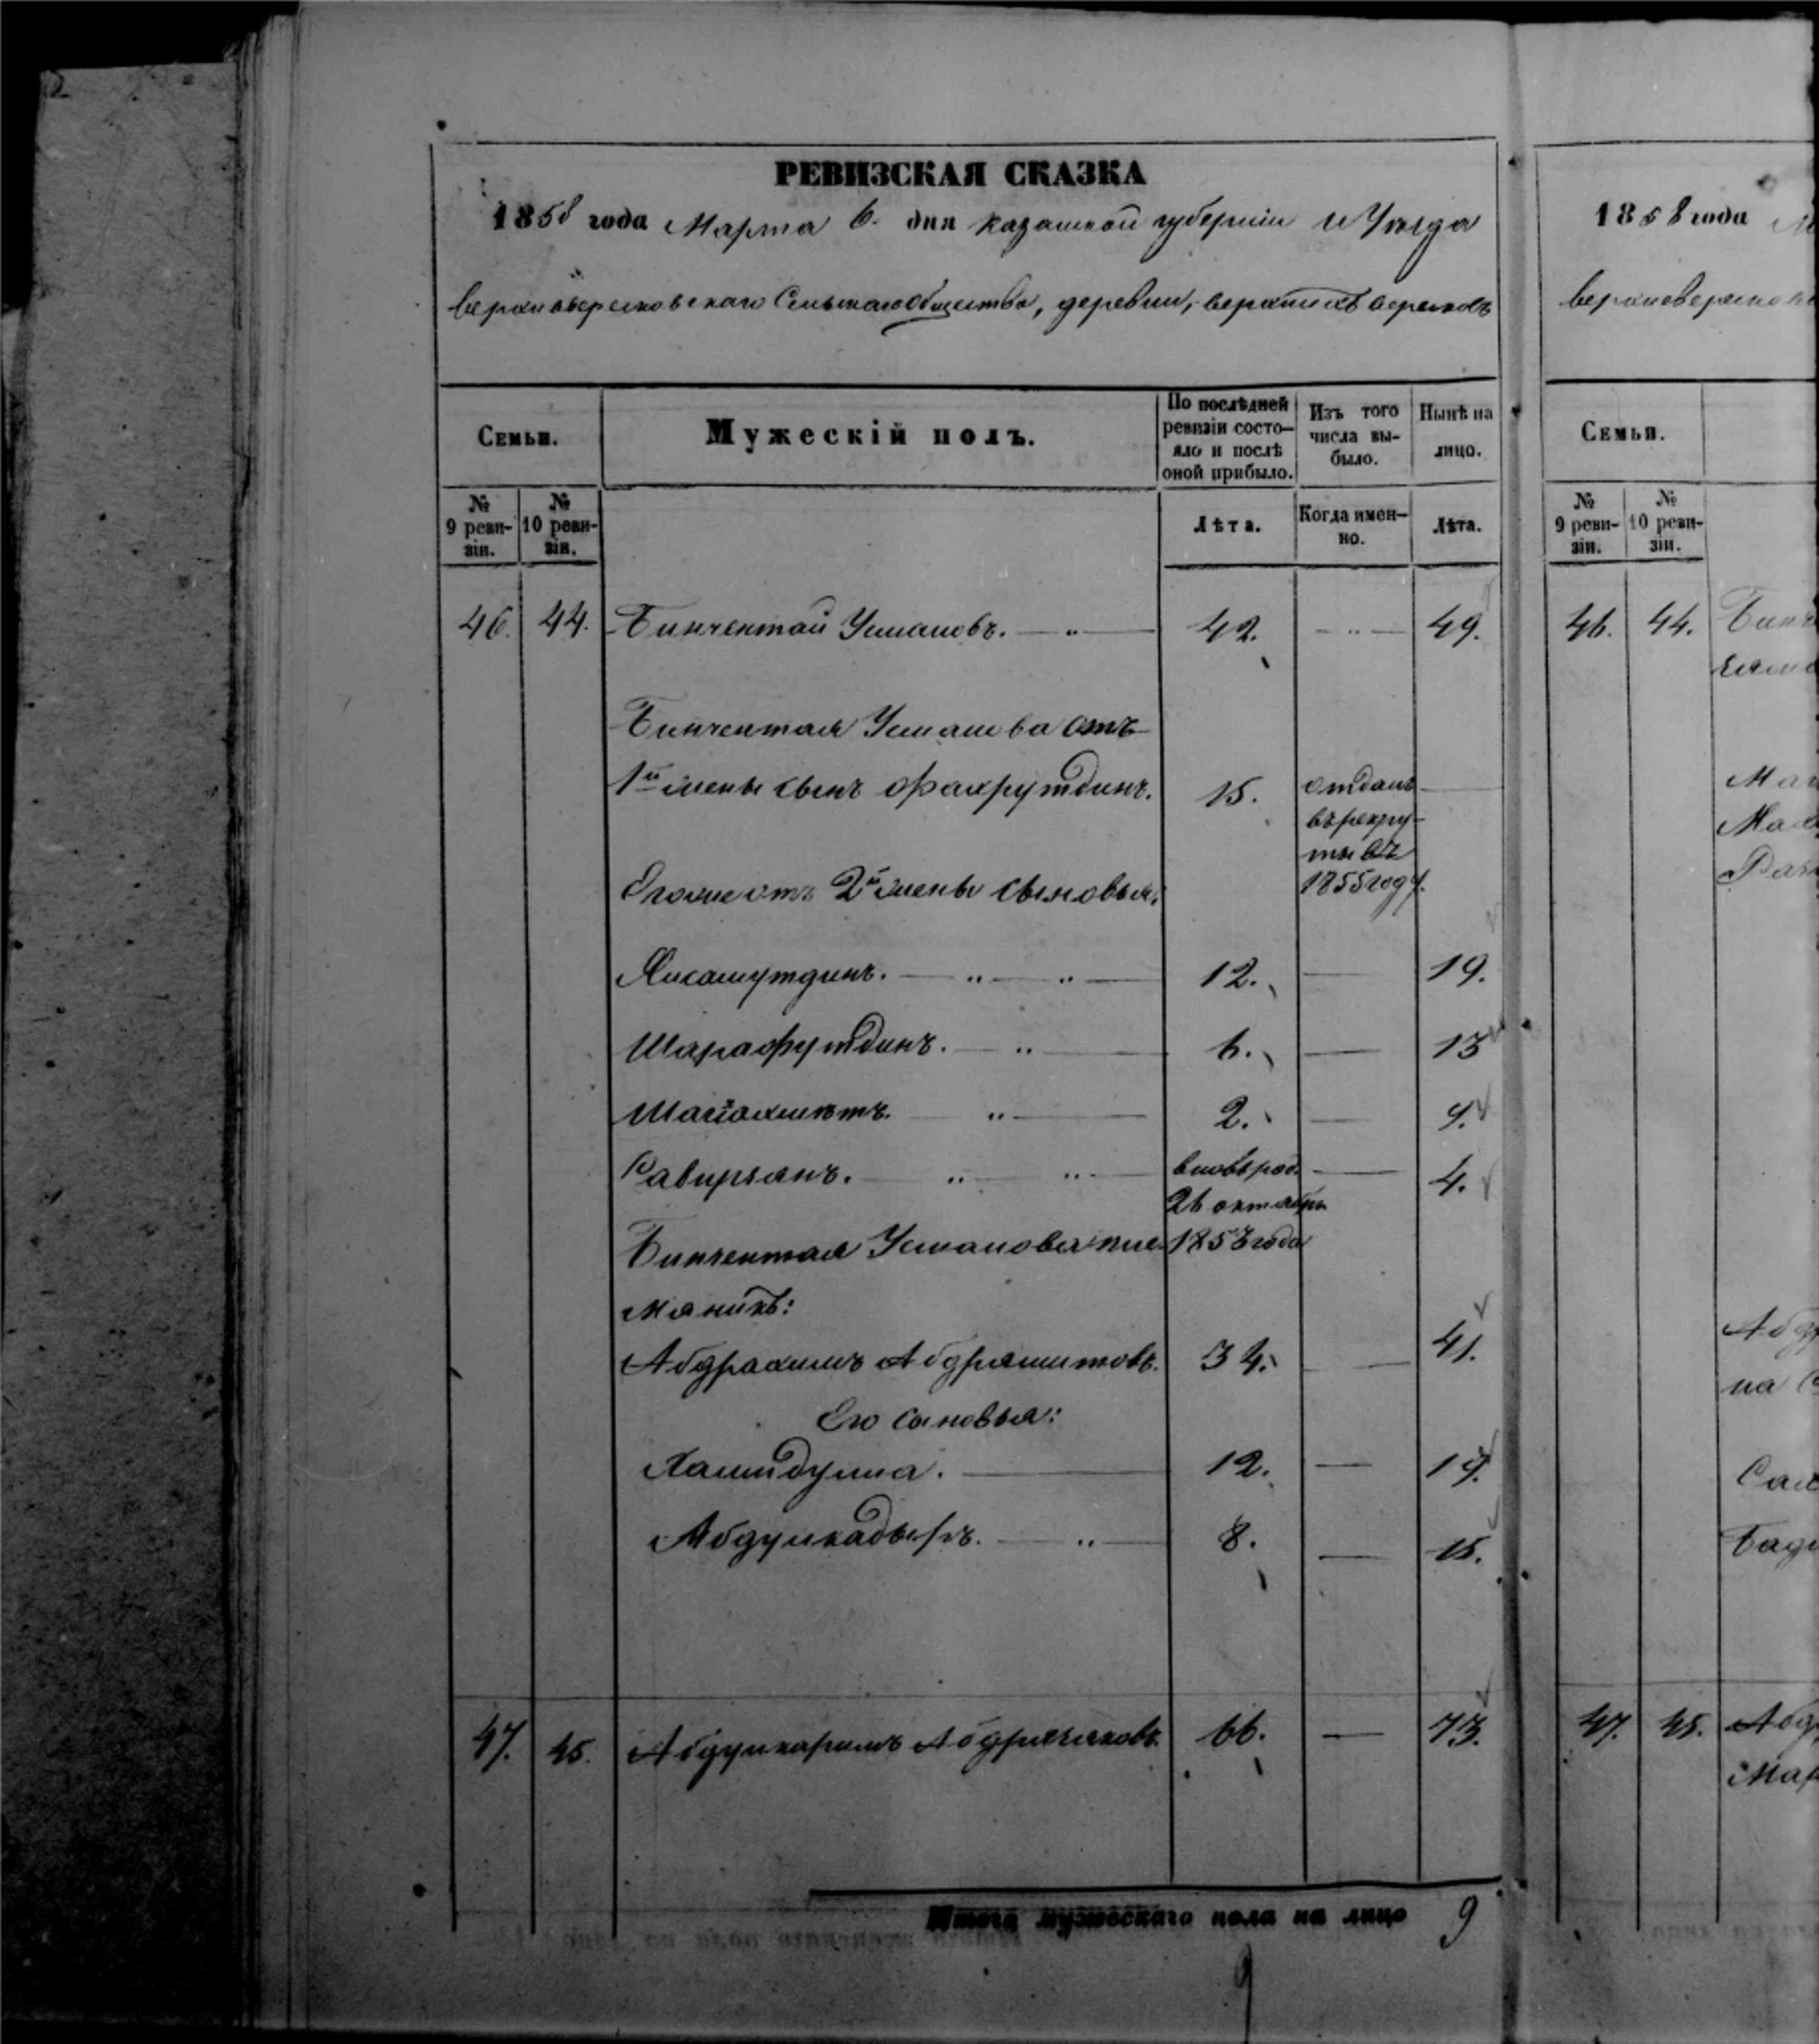 РЕВИЗСКАЯ СКАЗКА
1858 года Марта 6. дня Казанской губерніи и Уѣзда
Верхневерезковскаго Сельскаго Общества, деревни, верхнихъ верезковъ
Семьи.
Мужескій полъ.
По послѣдней ревизіи состояло и послѣ оной прибыло.
Изъ того числа выбыло.
Нынѣ на лицо.
№ 9 ревизіи.
№ 10 ревизіи.
Лѣта.
Когда именно.
Лѣта.
46. 44. Бикчентай Усмановъ. 42. 49.
Бикчентая Усманова отъ
1й жены сынъ Фахрутдинъ. 15. отданъ
въ рекру-
ты въ
1855 году.
Его же отъ 2й жены сыновья:
Хисамутдинъ. 12. 19.
Шарафутдинъ. 6. 13
Шагіахметъ. 2. 9.
вновь род.
26 октября
1853 года
4.
Бикчентая Усманова пле-
мяникъ:
Абдрахимъ Абдряшитовъ. 34. 41.
Его сыновья:
Хамидулла. 12. 19.
Абдулкадыръ. 8. 15.
47. 45. Абдулкаримъ 66. 73.
Итого мужескаго пола на лицо 9
9
1858 года
Семьи.
№ 9 ревизіи.
№ 10 ревизіи.
46. 44.
47. 45.